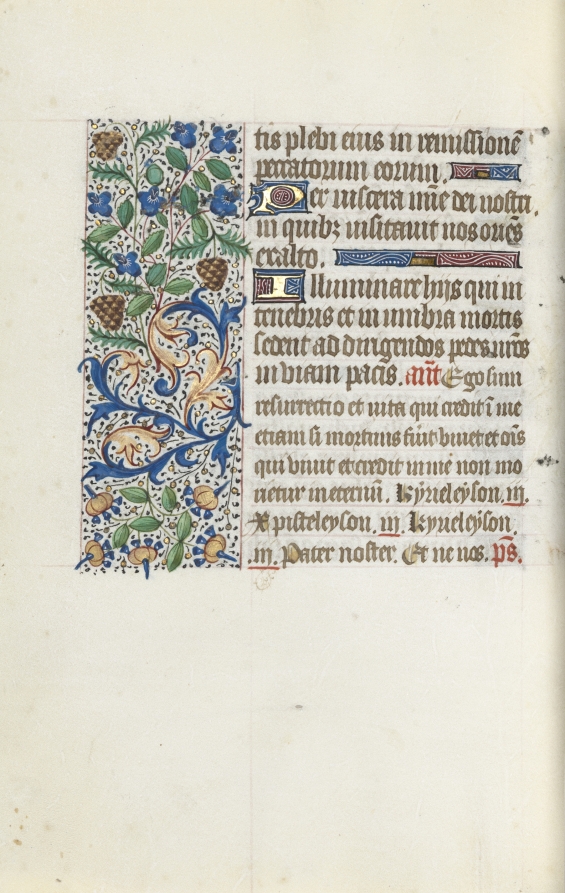 tis plebi eius in remissionē
peccatorum eorum.
Per viscera mīe dei nostri
in quibꝫ visitavit nos oriēs
ex alto.
Illuminare hijs qui in
tenebris et in umbra mortis
sedent ad dirigendos pedes nr̄os
in viam pacis. ant̄ Ego sum
resurrectio et vita qui credit ī me
etiam si mortuus fūit vivet et oīs
qui vivit et credit in me non mo
rietur in eternū. Kyrieleyson. iij.
Xpisteleyson. iij. Kyrieleyson.
iij. Pater noster. Et ne nos. p̄s.